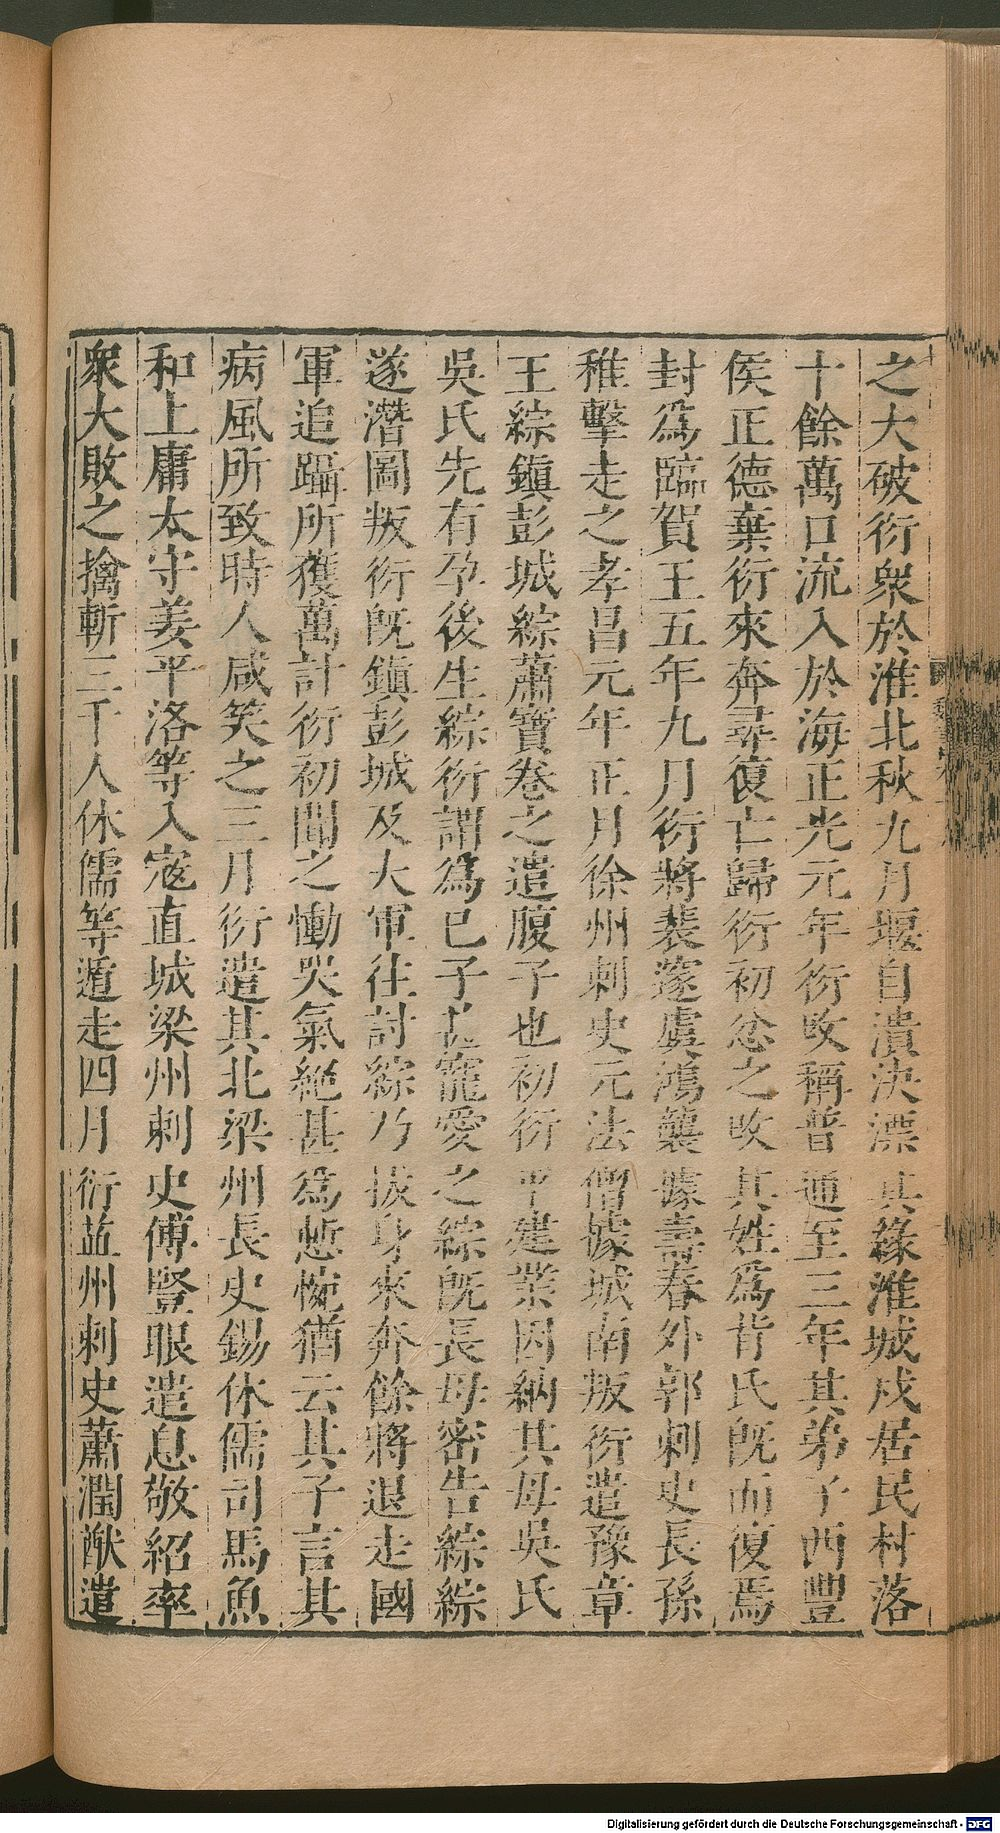 之大破衍衆於淮北秋九月堰自潰決漂其緣淮城戍居民村落
十餘萬口流入於海正光元年衍改稱普通至三年其弟子西豐
侯正德棄衍來奔尋復亡歸衍初忿之改其姓為背氏旣而復焉
封為臨賀王五年九月衍將裴邃虞鴻襲據壽春外郭刺史長孫
稚擊走之孝昌元年正月徐州刺史元法僧據城南叛衍遣豫章
王綜鎭彭城綜蕭寶卷之遣腹子也初衍平建業因納其母吳氏
吳氏先有孕後生綜衍謂為已子甚寵愛之綜旣長母密告綜綜
遂潛圖叛衍旣鎭彭城及大軍往討綜乃拔身來奔餘將退走國
軍追躡所獲萬計衍初聞之慟哭氣絶甚為慙惋猶云其子言其
病風所致時人咸笑之三月衍遣其北梁州長史錫休儒司馬魚
和上庸太守姜平洛等入寇直城梁州刺史傅豎眼遣息敬紹率
衆大敗之擒斬三千人休儒等遁走四月衍益州刺史蕭淵猷遣
Digitalisierung gefördert durch die Deutsche Forschungsgemeinschaft - DFG